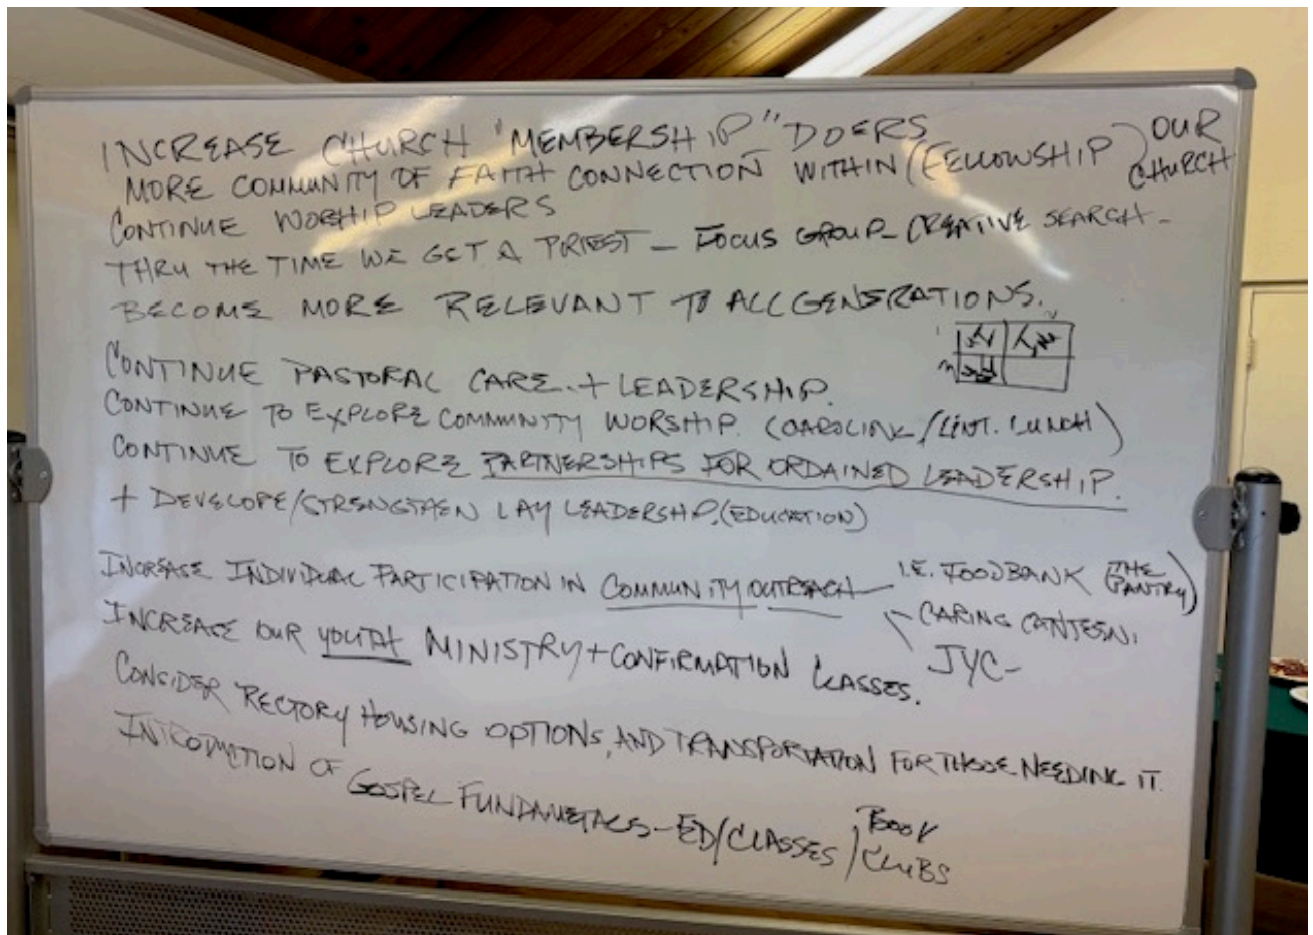 INCREASE CHURCH "MEMBERSHIP" DOERS
MORE COMMUNITY OF FAITH CONNECTION WITHIN (FELLOWSHIP) OUR CHURCH
CONTINUE WORSHIP LEADERS
THRU THE TIME WE GET A PRIEST - FOCUS GROUP - CREATIVE SEARCH -
BECOME MORE RELEVANT TO ALL GENERATIONS.
CONTINUE PASTORAL CARE + LEADERSHIP.
CONTINUE TO EXPLORE COMMUNITY WORSHIP. (CAROLINK/LENT. LUNCH)
CONTINUE TO EXPLORE PARTNERSHIPS FOR ORDAINED LEADERSHIP.
+ DEVELOPE/STRENGTHEN LAY LEADERSHIP. (EDUCATION)
INCREASE INDIVIDUAL PARTICIPATION IN COMMUNITY OUTREACH - I.E. FOODBANK (THE PANTRY)
CARING CANTEEN,
INCREASE OUR YOUTH MINISTRY + CONFIRMATION CLASSES.
JYC -
CONSIDER RECTORY HOUSING OPTIONS, AND TRANSPORTATION FOR THOSE NEEDING IT.
INTRODUCTION OF GOSPEL FUNDAMETALS - ED/CLASSES / BOOK CLUBS